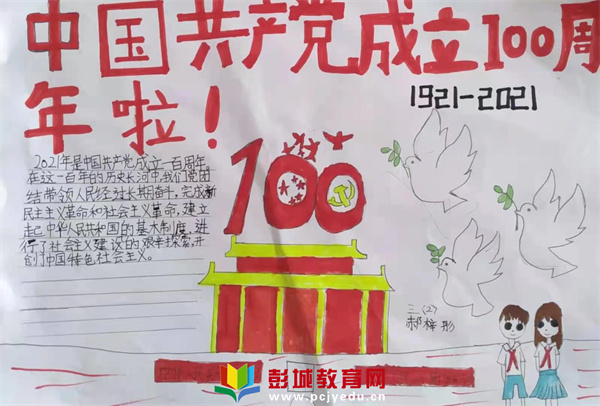 中国共产党成立100周
年啦!
1921-2021
2021年是中国共产党成立一百周年,
在这一百年的历史长河中,我们党团
结带领人民经过长期奋斗,完成新
民主主义革命和社会主义革命,建立
起中华人民共和国的基本制度,进
行了社会主义建设的艰辛探索,开
创了中国特色社会主义。
100
三、(2)
郝梓彤
彭城教育网
www.pcjyedu.cn